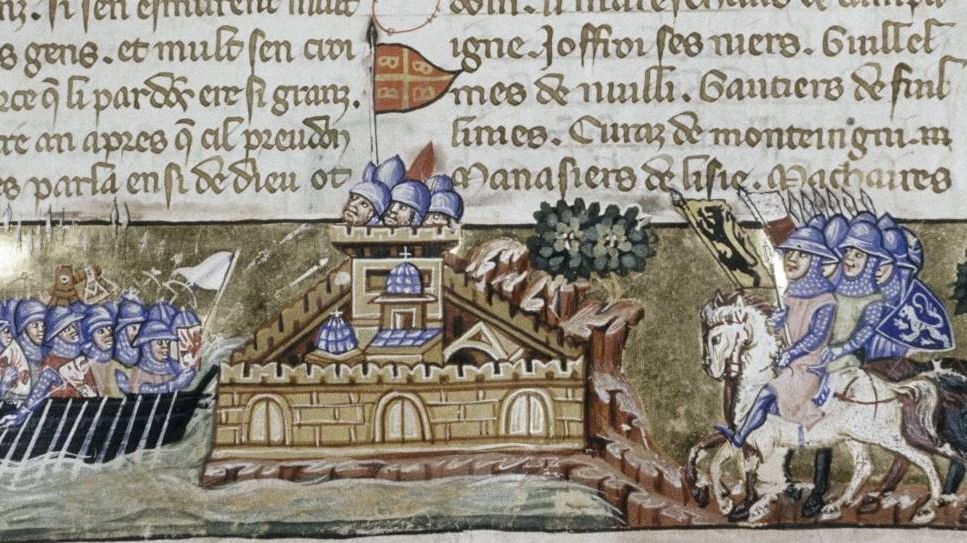 nz. Si sen esmurent mult
s gens. et mult sen croi
rce q̃ li pardõs ere si granz.
an apres q̃ cil preudõ
es parla en si de dieu ot
doin. li mareschaus de campa
igne. Joffroi ses niers. Guillel
mes de nuilli. Gautiers de fuil
linies. Euraz de monteingni. m
Manasiers de lisle. Machaires